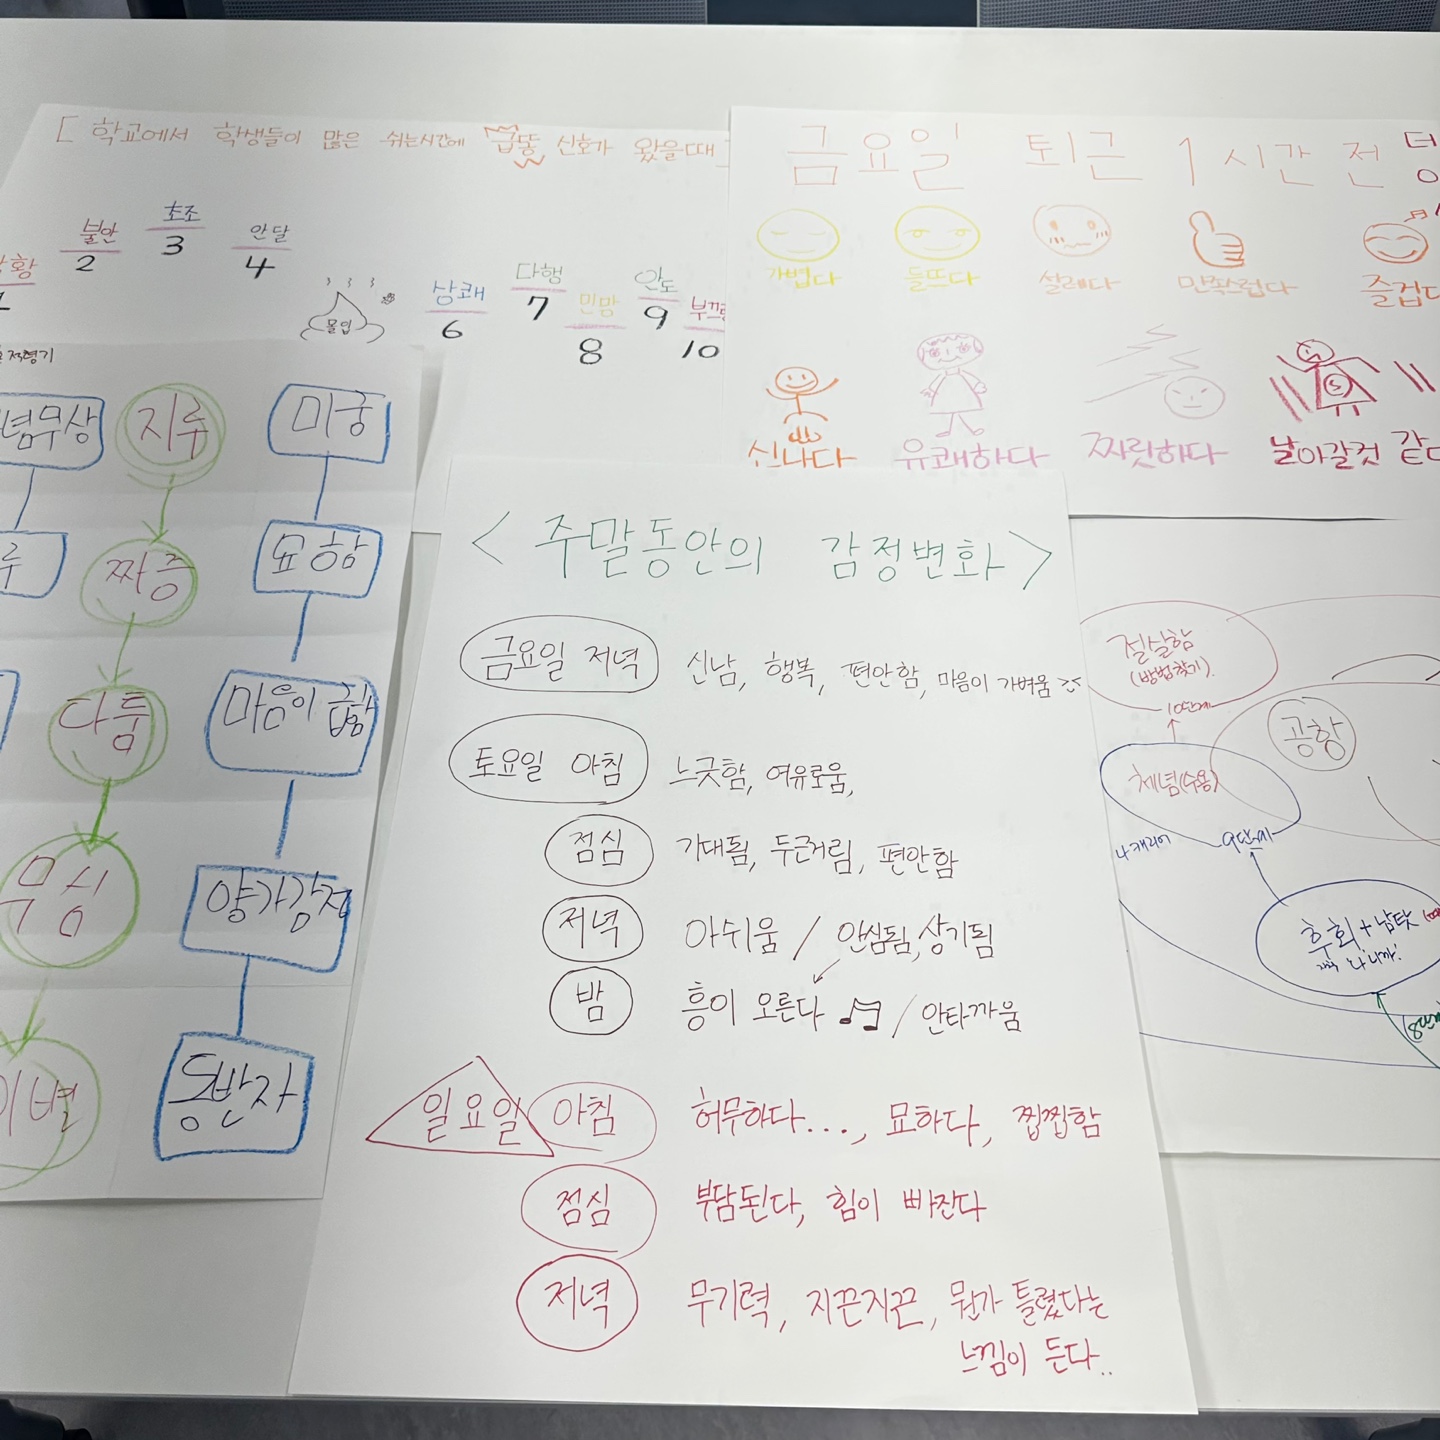 [ 학교에서 학생들이 많은 쉬는시간에 급똥 신호가 왔을때 ]
불안
2
초조
3
안달
4
몰입
상쾌
6
다행
7
민망
8
안도
9
10
금요일 퇴근 1시간 전
가볍다
들뜨다
설레다
만족스럽다
즐겁다
신나다
유쾌하다
짜릿하다
날아갈것 같다
념무상
지루
짜증
다툼
무심
이별
미궁
묘함
마음이 급함
양가감정
동반자
< 주말동안의 감정변화 >
금요일 저녁 신남, 행복, 편안함, 마음이 가벼움
토요일 아침 느긋함, 여유로움,
점심 기대됨, 두근거림, 편안함
저녁 아쉬움 / 안심됨, 상기됨
밤 흥이 오른다 ♫ / 안타까움
일요일 아침 허무하다..., 묘하다, 찝찝함
점심 부담된다, 힘이 빠진다
저녁 무기력, 지끈지끈, 뭔가 틀렸다는
느낌이 든다..
절실함
(방법찾기).
10단계
공항
체념(수용)
9단계
후회+남탓
8단계